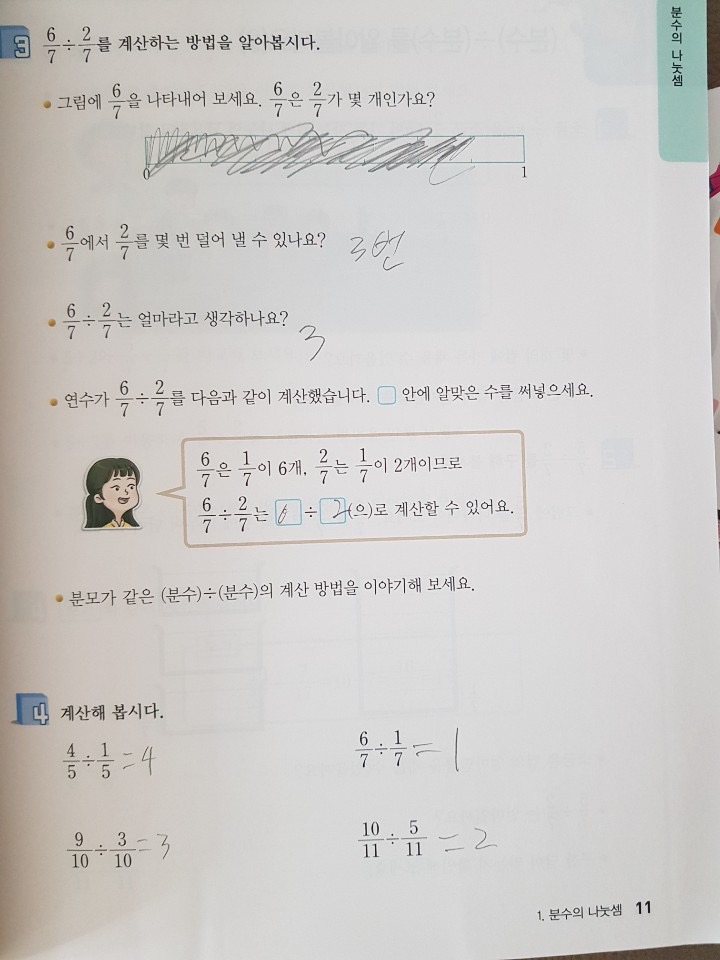 분수의 나눗셈
3 6/7÷2/7를 계산하는 방법을 알아봅시다.
• 그림에 6/7을 나타내어 보세요. 6/7은 2/7가 몇 개인가요?
0 1
• 6/7에서 2/7를 몇 번 덜어 낼 수 있나요? 3번
• 6/7÷2/7는 얼마라고 생각하나요? 3
• 연수가 6/7÷2/7를 다음과 같이 계산했습니다. □ 안에 알맞은 수를 써넣으세요.
6/7은 1/7이 6개, 2/7는 1/7이 2개이므로
6/7÷2/7는 6÷2(으)로 계산할 수 있어요.
• 분모가 같은 (분수)÷(분수)의 계산 방법을 이야기해 보세요.
4 계산해 봅시다.
4/5÷1/5=4 6/7÷1/7=1
9/10÷3/10=3 10/11÷5/11=2
1. 분수의 나눗셈 11